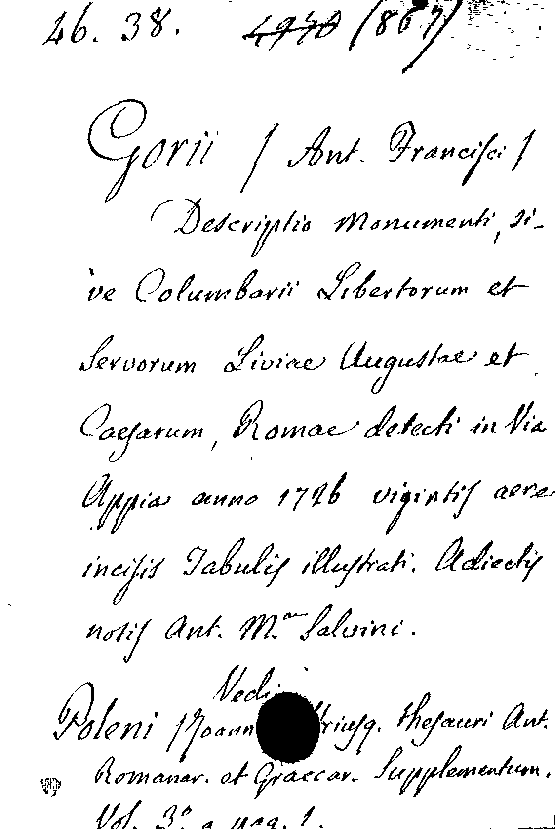 46. 38. 4970 (867)
Gorii / Ant. Francisci /
Descriptio Monumenti, si-
ve Columbarii Libertorum et
Servorum Liviae Augustae et
Caesarum, Romae detecti in Via
Appia anno 1726 vigintis aere
incisis Tabulis illustrati. Adiectis
notis Ant. M.ae Salvini.
Vedi
Poleni / Joann utriusq. thesauri Ant.
Romanar. et Graecar. Supplementum.
Vol. 3.o a pag. 1.